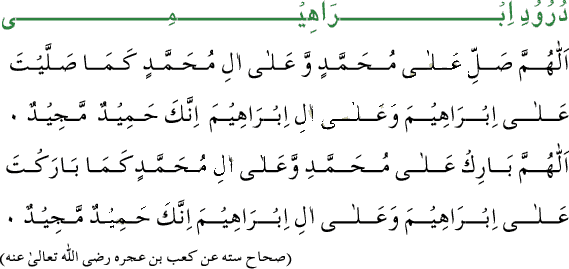 دُرُودِ اِبْرَاهِيْمِى
اَللّٰهُمَّ صَلِّ عَلٰى مُحَمَّدٍ وَّ عَلٰى اٰلِ مُحَمَّدٍ كَمَا صَلَّيْتَ
عَلٰى اِبْرَاهِيْمَ وَعَلٰى اٰلِ اِبْرَاهِيْمَ اِنَّكَ حَمِيْدٌ مَّجِيْدٌ ۰
اَللّٰهُمَّ بَارِكْ عَلٰى مُحَمَّدٍ وَّعَلٰى اٰلِ مُحَمَّدٍ كَمَا بَارَكْتَ
عَلٰى اِبْرَاهِيْمَ وَعَلٰى اٰلِ اِبْرَاهِيْمَ اِنَّكَ حَمِيْدٌ مَّجِيْدٌ ۰
(صحاح سته عن كعب بن عجره رضى الله تعالىٰ عنه)